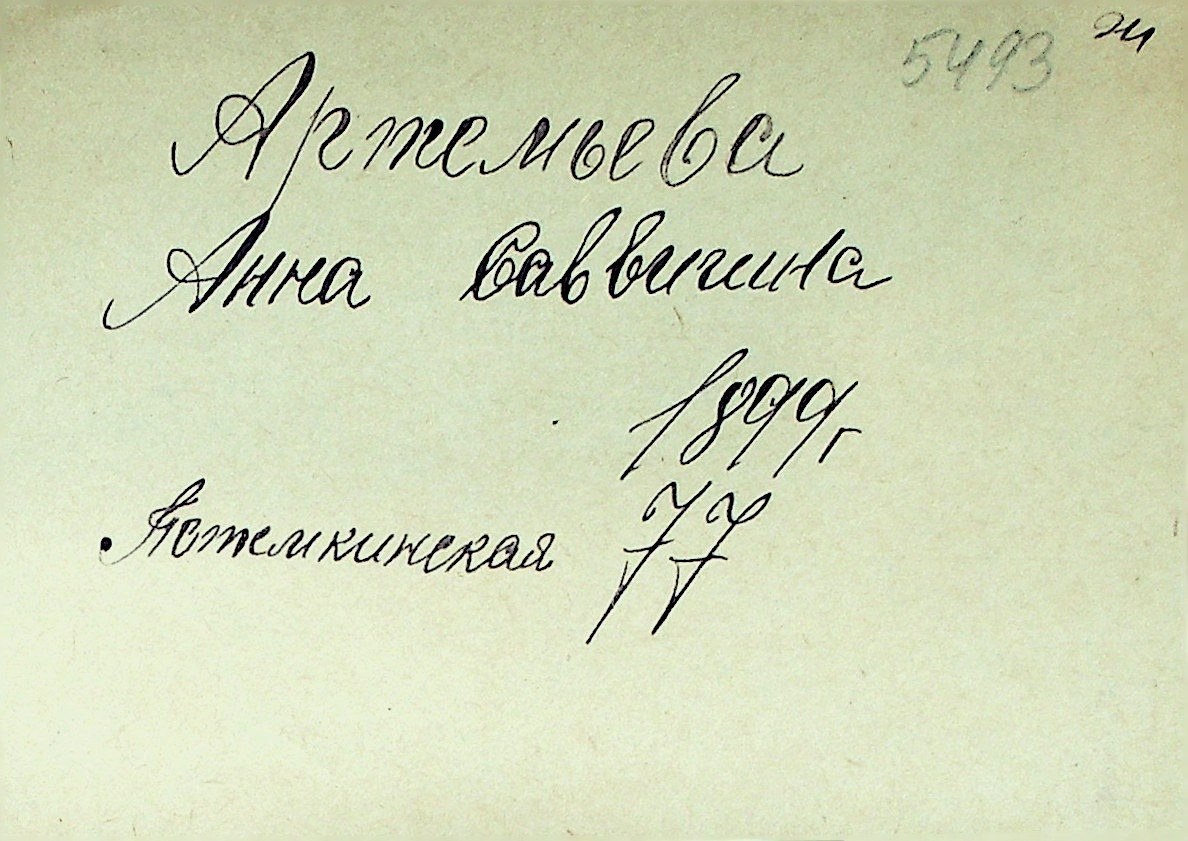 5493
Артемьева
Анна Саввична
1899г
Потемкинская 77